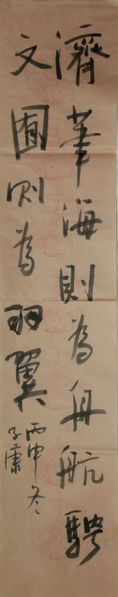 濟筆海則為舟航騁
文囿則為羽翼
丙申冬
子康